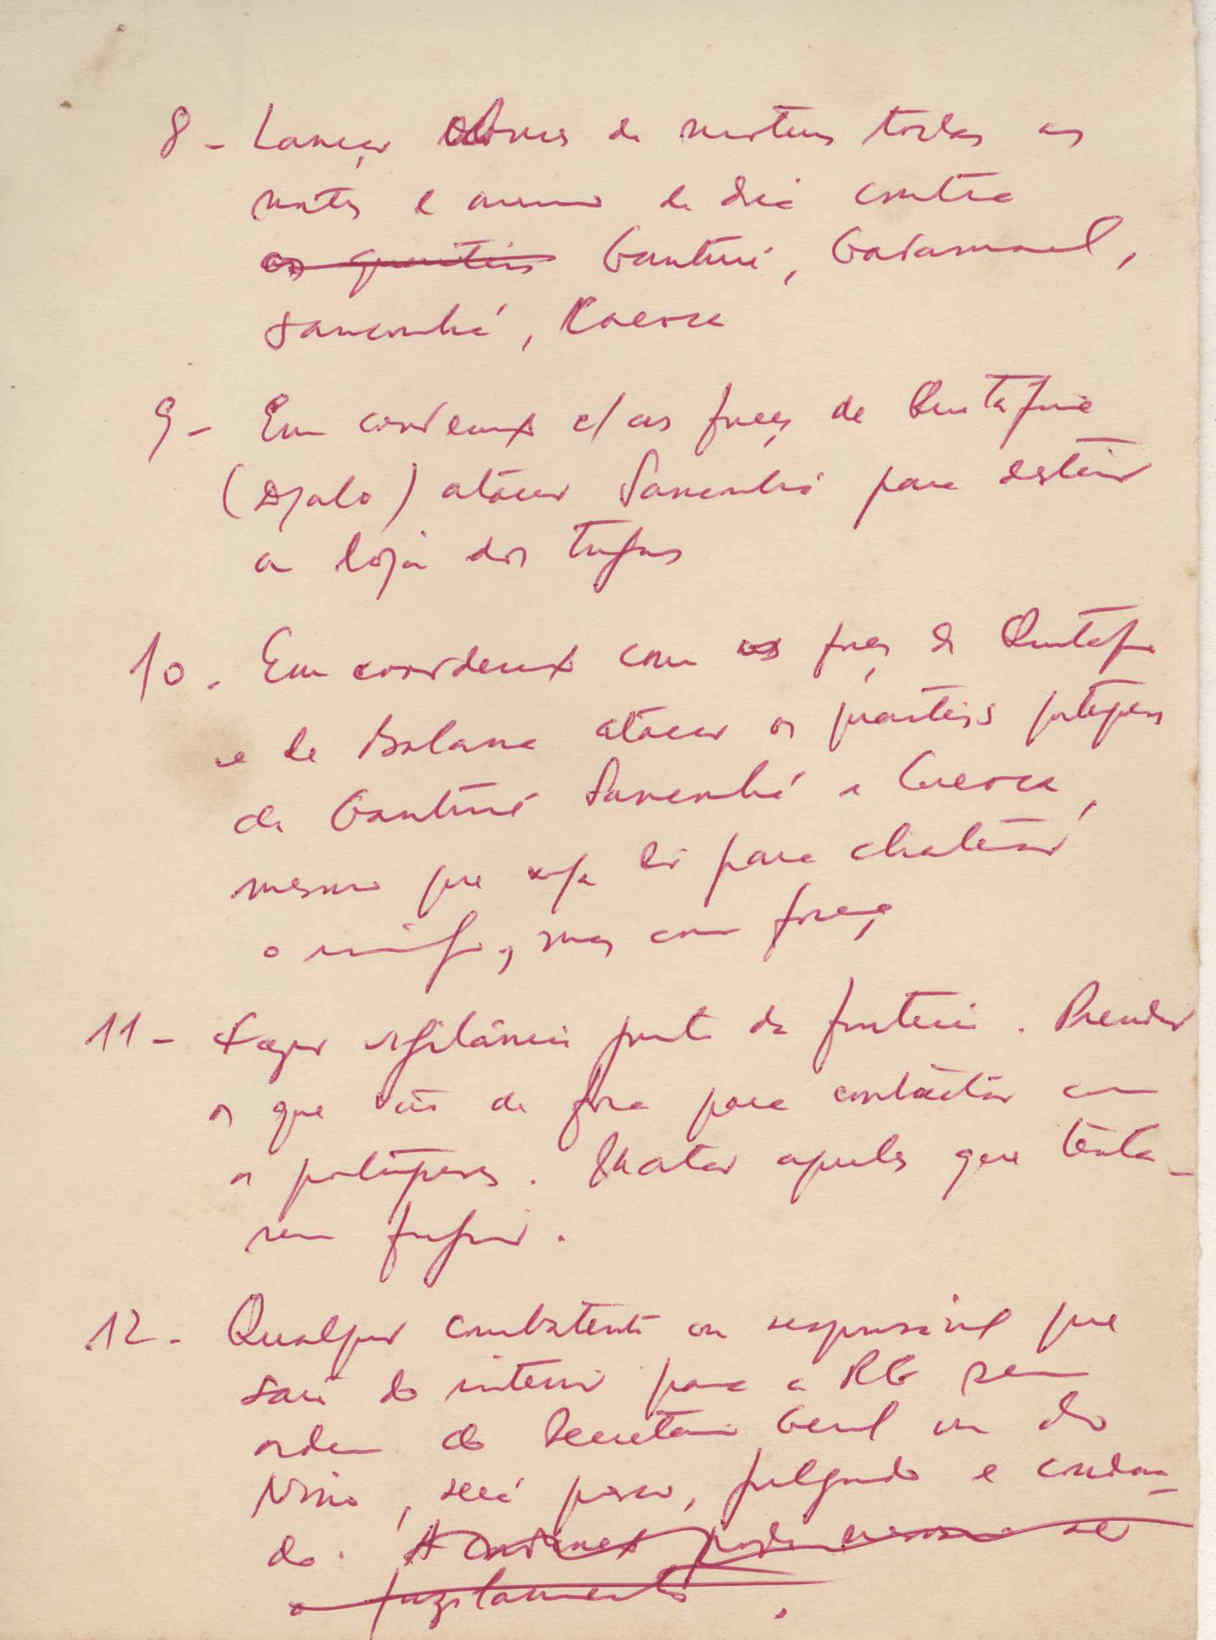 8 - Lançar obuses de morteiro todas as
noites e mesmo de dia contra
os quarteis Ganturé, Gadamael,
Sanconhá, Cacoca
9 - Em coordenação c/ as forças de Quitáfine
(Djalo) atacar Sanconhá para destruir
a loja dos tugas
10. Em coordenação com as forças de Quitáfine
e de Balana atacar os quarteis portugueses
de Ganturé Sanconhá e Cacoca,
mesmo que seja só para chatear
o inimigo, mas com força
11 - Fazer vigilância junto da fronteira. Prender
os que vão de fora para contactar com
os portugueses. Matar aqueles que tenta-
rem fugir.
12 - Qualquer combatente ou responsável que
sair do interior para a RG sem
ordem do Secretário Geral ou do
Nino, será preso, julgado e condena-
do. A condenação pode mesmo ser
o fuzilamento.